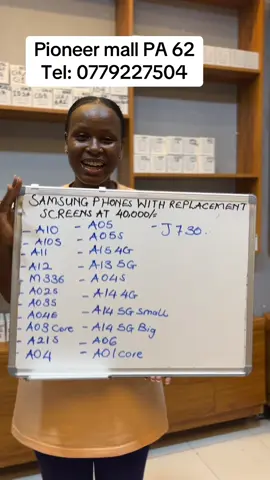 Pioneer mall PA 62
Tel: 0779227504
SAMSUNG PHONES WITH REPLACEMENT
SCREENS AT 40,000/=
- A10
- A10S
- A11
- A12
- M336
- A02S
- A03S
- A04E
- A03 Core
- A21S
- A04
- A05
- A05S
- A15 4G
- A13 5G
- A04S
- A14 4G
- A14 5G Small
- A14 5G Big
- A06
- A01 Core
- J730.